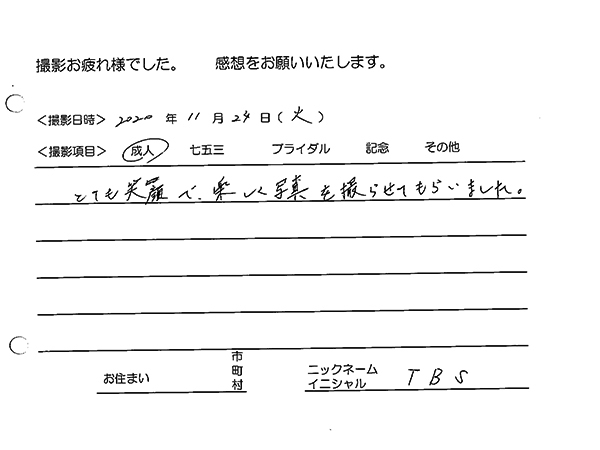 撮影お疲れ様でした。 感想をお願いいたします。
<撮影日時> 2020 年 11 月 24 日 (火)
<撮影項目> 成人 七五三 ブライダル 記念 その他
とても笑顔で、楽しく写真を撮らせてもらいました。
お住まい 市町村 ニックネーム イニシャル TBS